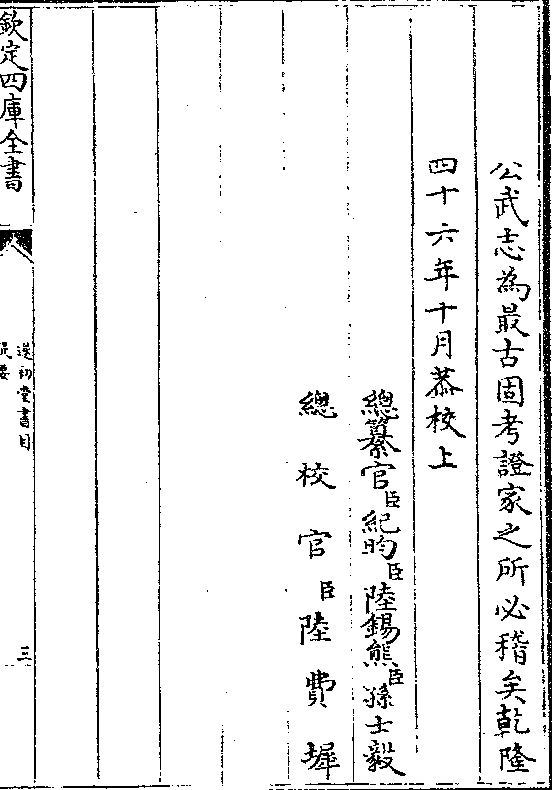 公武志為最古固考證家之所必稽矣乾隆
四十六年十月恭校上
總纂官臣紀昀臣陸錫熊臣孫士毅
總校官臣陸費墀
欽定四庫全書
遂初堂書目
提要
三